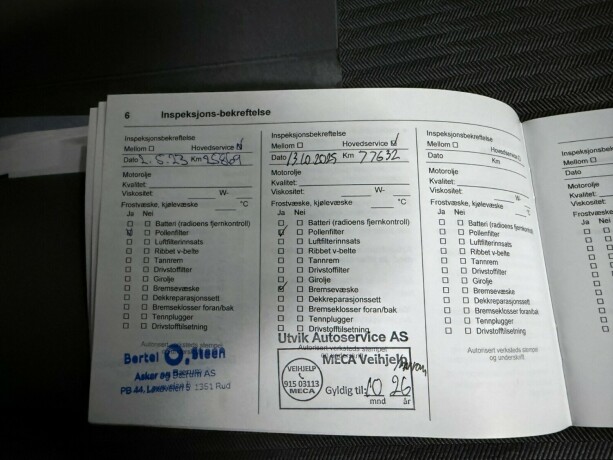 6 Inspeksjons-bekreftelse
Inspeksjonsbekreftelse
Mellom ☐ Hovedservice ☑
Dato 2.5.23 Km
Motorolje
Kvalitet:
Viskositet: W-
Frostvæske, kjølevæske °C
Ja Nei
Batteri (radioens fjernkontroll)
Pollenfilter
Luftfilterinnsats
Ribbet v-belte
Tannrem
Drivstoffilter
Girolje
Bremsevæske
Dekkreparasjonssett
Bremseklosser foran/bak
Tennplugger
Drivstofftilsetning
Autorisert verksteds stempel
Bertel O. Steen
Asker og Bærum AS
PB 44, 1351 Rud
Inspeksjonsbekreftelse
Mellom ☐ Hovedservice ☑
Dato 13.10.2025 Km 77632
Motorolje
Kvalitet:
Viskositet: W-
Frostvæske, kjølevæske °C
Ja Nei
Batteri (radioens fjernkontroll)
Pollenfilter
Luftfilterinnsats
Ribbet v-belte
Tannrem
Drivstoffilter
Girolje
Bremsevæske
Dekkreparasjonssett
Bremseklosser foran/bak
Tennplugger
Drivstofftilsetning
Utvik Autoservice AS
Autorisert verksteds stempel
MECA Veihjelp
VEIHJELP
915 03113
MECA
Gyldig til: 10 26
mnd år
Inspeksjonsbekreftelse
Mellom ☐ Hovedservice ☐
Dato Km
Motorolje
Kvalitet:
Viskositet: W-
Frostvæske, kjølevæske °C
Ja Nei
Batteri (radioens fjernkontroll)
Pollenfilter
Luftfilterinnsats
Ribbet v-belte
Tannrem
Drivstoffilter
Girolje
Bremsevæske
Dekkreparasjonssett
Bremseklosser foran/bak
Tennplugger
Drivstofftilsetning
Autorisert verksteds stempel
og underskrift
Mellom ☐
Dato
Motorolje
Kvalitet:
Viskositet:
Ja Nei